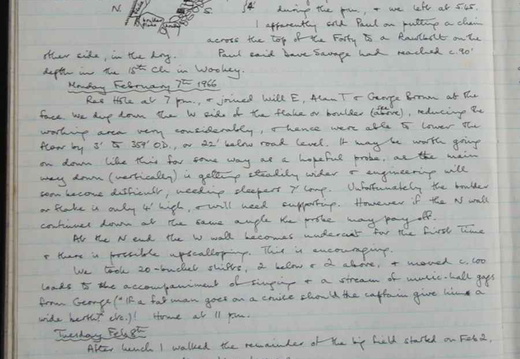 N. S. 14' during the pm, & we left at 5.45.
I apparently sold Paul on putting a chain
across the top of the Forty to a Rawlbolt on the
other side, in the dry. Paul said Dave Savage had reached c.90'
depth in the 15th Ch. in Wookey.
Monday February 7th 1966
Res Hole at 7 pm, & joined Will E, Alan T & George Brown at the
face. We dug down the W side of the flake or boulder (see above), reducing the
working area very considerably, & hence were able to lower the
floor by 3' to 359' O.D., or 22' below road level. It may be worth going
on down like this for some way as a hopeful probe, as the main
way down (vertically) is getting steadily wider & engineering will
soon become difficult, needing sleepers 7' long. Unfortunately the boulder
or flake is only 4' high, & will need supporting. However if the N wall
continues down at the same angle the probe may pay off.
At the N end the W wall becomes undercut for the first time
& there is possible upscalloping. This is encouraging.
We took 20-bucket shifts, 2 below & 2 above, & moved c.100
loads to the accompaniment of singing & a stream of music-hall gags
from George ("If a fat man goes on a cruise should the captain give him a
wide berth" etc.)! Home at 11 pm.
Tuesday Feb 8th
After lunch I walked the remainder of the big field started on Feb 2,